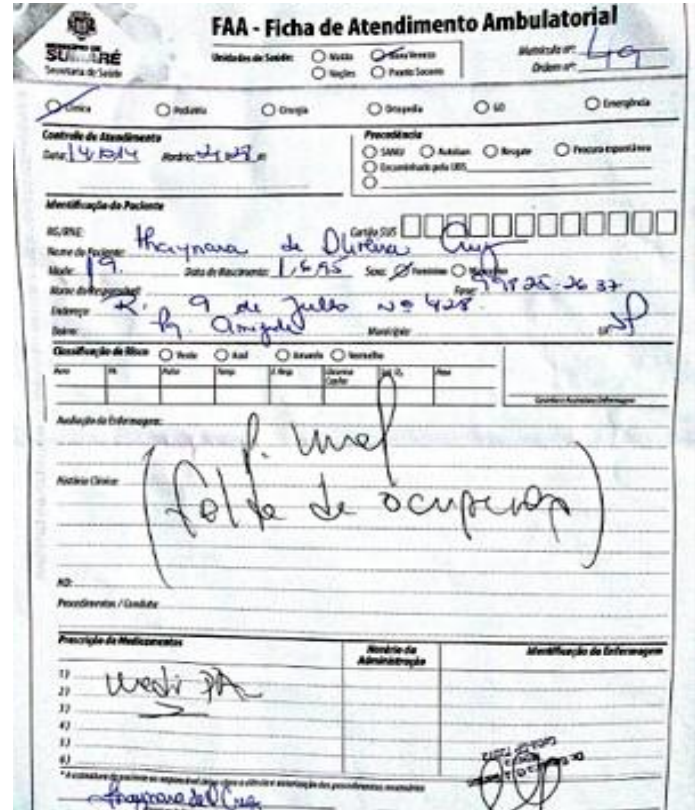 FAA - Ficha de Atendimento Ambulatorial
SUMARÉ
Secretaria de Saúde
Unidades de Saúde: Matão Nova Veneza
Nações Pronto Socorro
Matrícula nº: 49
Ordem nº:
Clínica Pediatria Cirurgia Ortopedia GO Emergência
Controle de Atendimento
Data: 14/10/14 Horário:
Procedência
SAMU Autoban Resgate Procura espontânea
Encaminhado pela UBS
Identificação do Paciente
RG/RNE: Cartão SUS
Nome do Paciente: thaynara de Oliveira Cruz
Idade: 19. Data de Nascimento: 1,6,95 Sexo: Feminino Masculino
Nome do Responsável: Fone: 99825-2637
Endereço: R. 9 de Julho nº 428.
Bairro: Município: UF: SP
Classificação de Risco Verde Azul Amarelo Vermelho
PA Pulso Temp. Peso
Carimbo e Assinatura Enfermagem
Avaliação da Enfermagem:
História Clínica:
(falta de ocupação)
HD:
Procedimentos / Conduta:
Prescrição de Medicamentos Horário da Administração Identificação da Enfermagem
1)
2) medir PA
3)
4)
5)
6)
* A assinatura do paciente ou responsável
thaynara de O Cruz